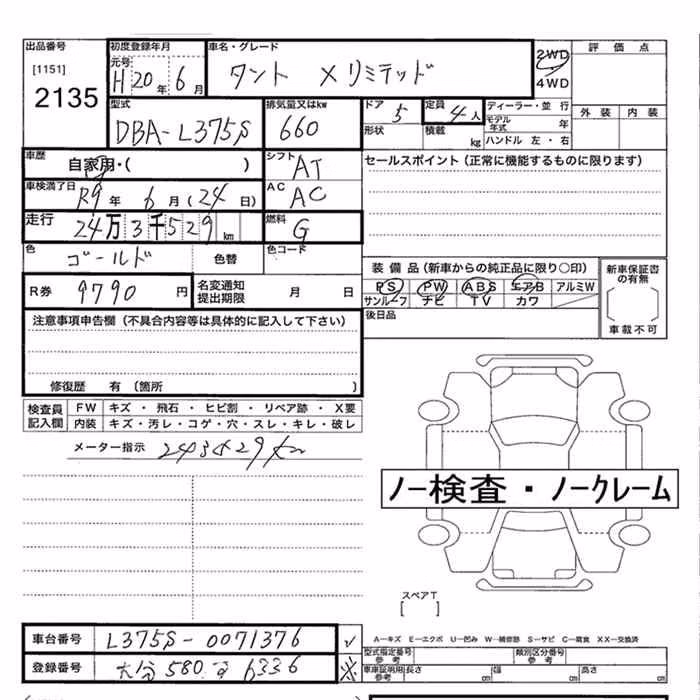 出品番号
[1151]
2135
初度登録年月
元号
H 20 年 6 月
車名・グレード
タント Xリミテッド
2WD
4WD
評価点
外装 内装
型式
DBA-L375S
排気量又はkw
660
ドア
5
定員
4 人
形状
積載
kg
ディーラー・並行
モデル年式 年
ハンドル 左・右
車歴
自家用・( )
シフト
AT
セールスポイント(正常に機能するものに限ります)
車検満了日
R9 年 6 月(24 日)
AC
AC
走行
24万3千529km
燃料
G
色
ゴールド
色替
色コード
装備品(新車からの純正品に限り○印)
PS PW ABS エアB アルミW
サンルーフ ナビ TV カワ
新車保証書の有無
車載不可
R券
9790 円
名変通知提出期限
月 日
後日品
注意事項申告欄(不具合内容等は具体的に記入して下さい)
修復歴 有(箇所 )
検査員記入欄
FW キズ・飛石・ヒビ割・リペア跡・X要
内装 キズ・汚レ・コゲ・穴・スレ・キレ・破レ
メーター指示 243529km
ノー検査・ノークレーム
スペアT
[ ]
車台番号
L375S-0071376
登録番号
大分 580 6336
A−キズ E−エクボ U−凹み W−補修跡 S−サビ C−腐食 XX−交換済
型式指定番号
参考
類別区分番号
参考
車庫証明用
参考
長さ cm
幅 cm
高さ cm